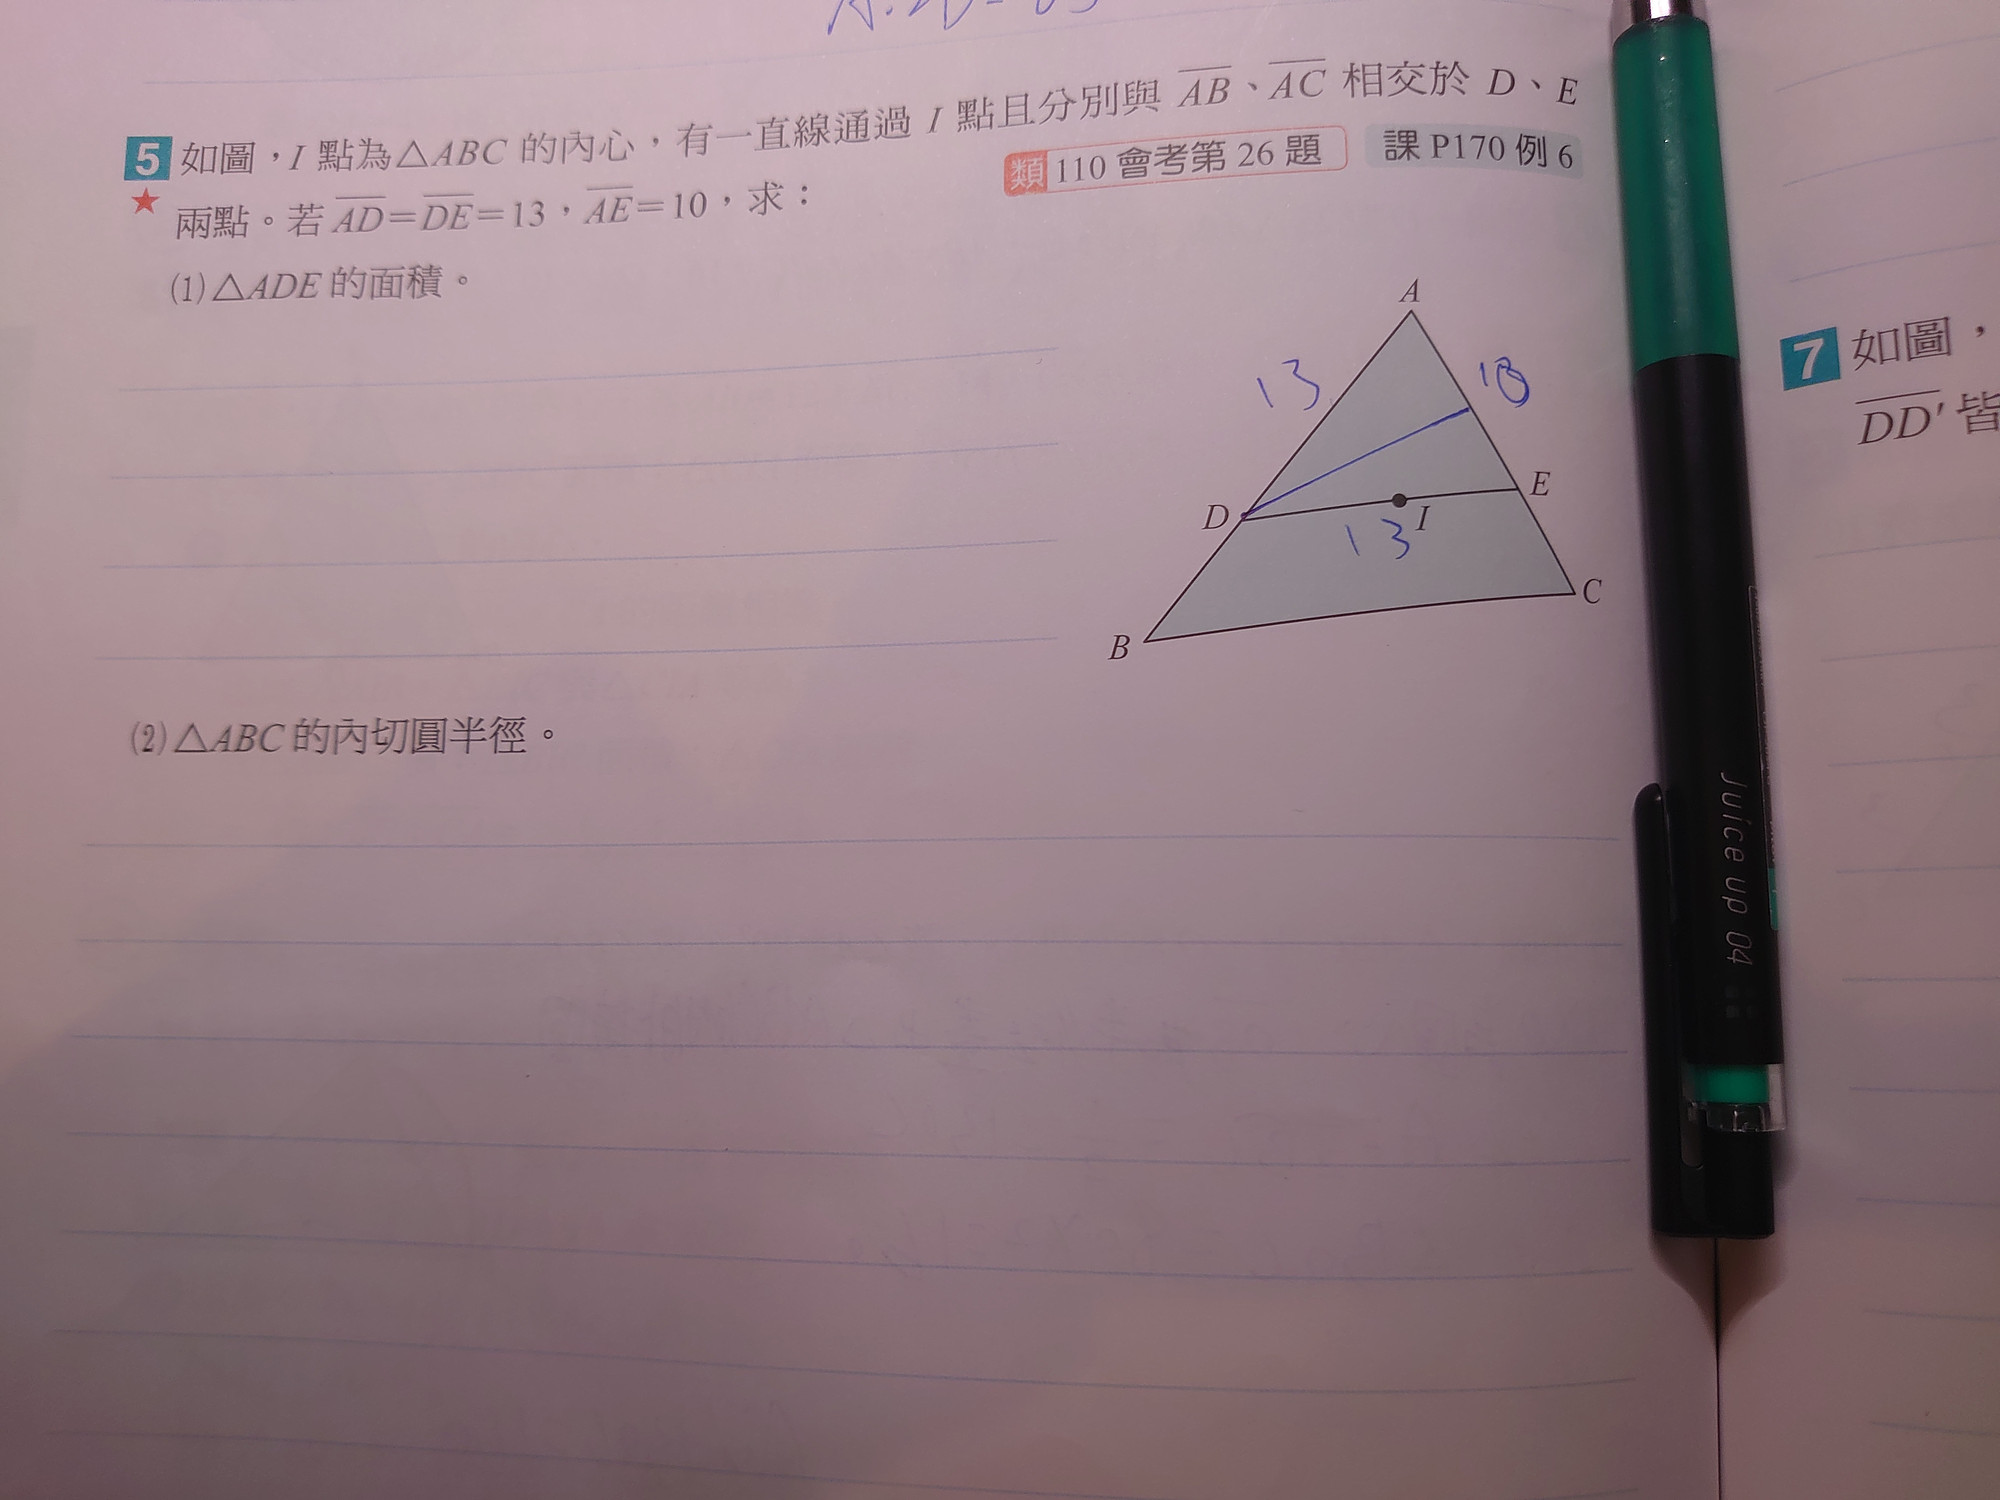 5 如圖，I 點為△ABC 的內心，有一直線通過 I 點且分別與 AB、AC 相交於 D、E
★ 兩點。若 AD=DE=13，AE=10，求：
類 110 會考第 26 題 課 P170 例 6
(1)△ADE 的面積。
A
13
10
D
E
I
13
B
C
(2)△ABC 的內切圓半徑。
7 如圖，
DD' 皆
Juice up 04